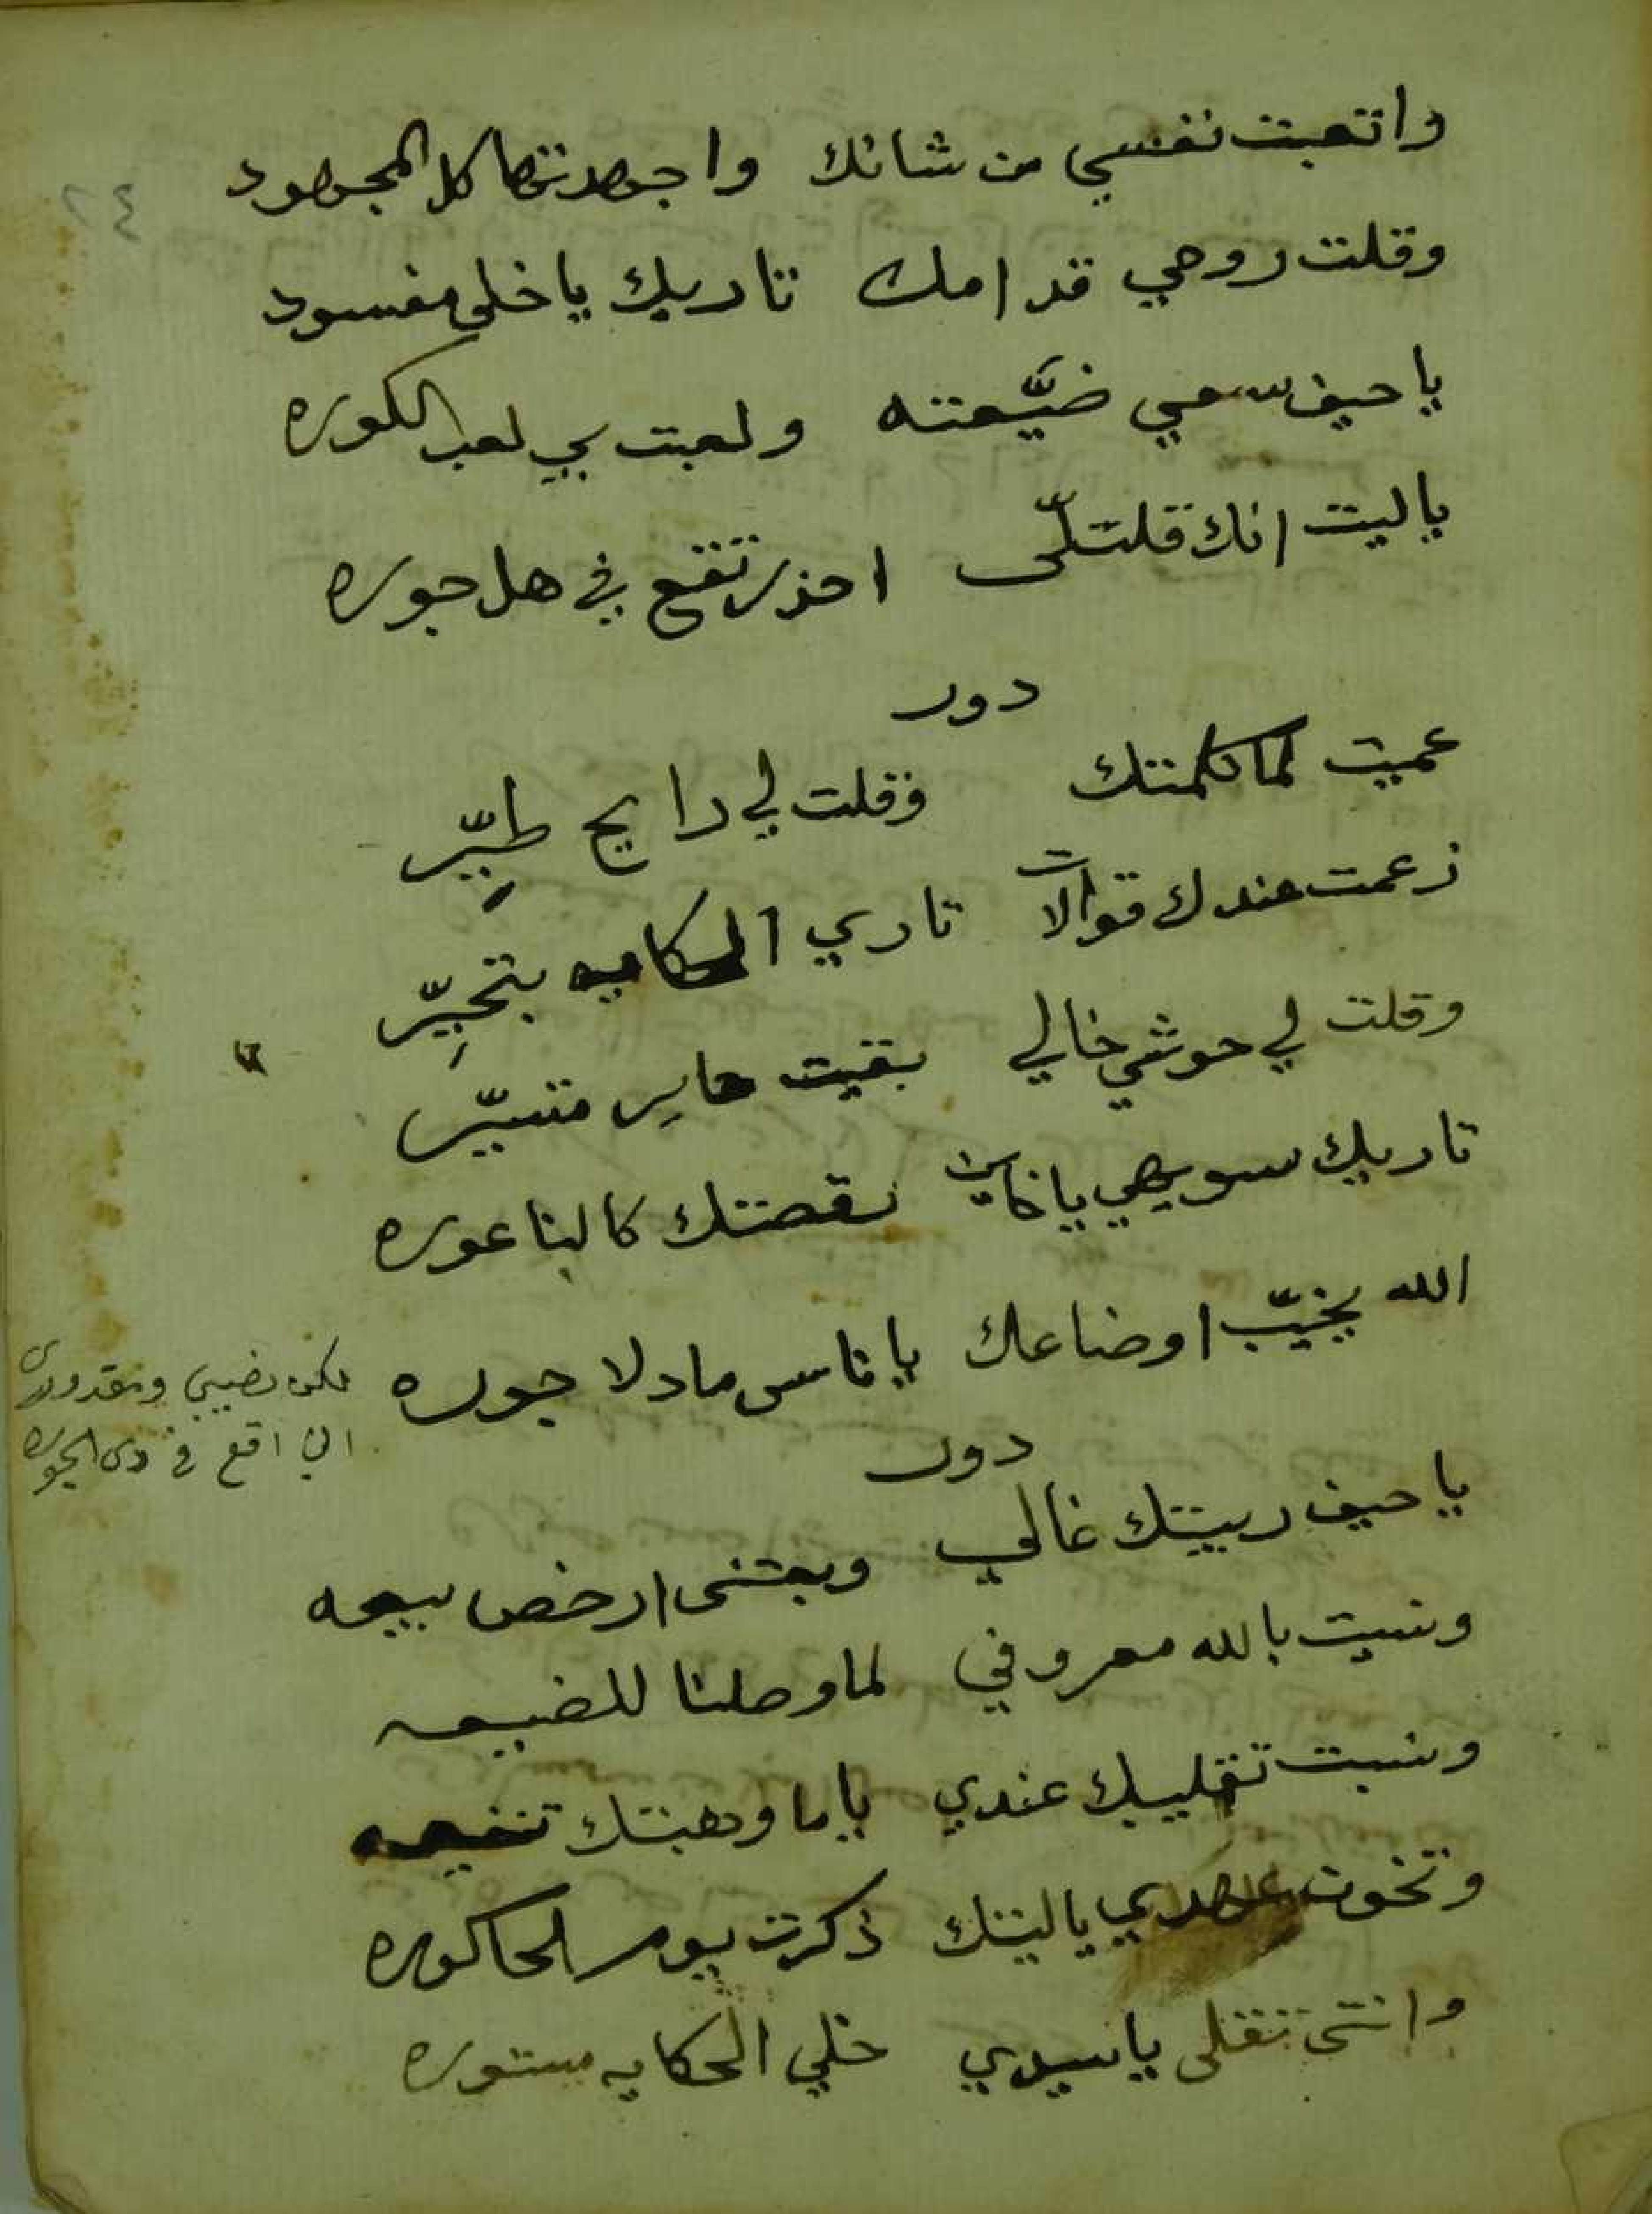 ٢٤
واتعبت نفسي من شانك واجهدتها كل المجهود
وقلت روحي قدامك تاريك ياخلي مفسود
ياحيف سعيي ضيّعته ولعبت بي لعب الكوره
ياليت انك قلتلّى احذر تقع في هل جوره
دور
عميت لما كلمتك وقلت لي رايح طيّر
زعمت عندك قوالات تاري الحكايه بتحيّر
وقلت لي حوشي خالي بقيت حاير متسيّر
تاريك سويهي ياخاين نقضتك كالناعوره
الله يخيّب اوضاعك ياناس مادلا جوره
لكن نصيبي ومقدورى
اني اقع في دى الجوره
دور
ياحيف ربيتك غالي وبعتنى ارخص بيعه
ونسيت بالله معروفي لما وصلنا للضيعه
ونسيت تقليبك عندي ياما وهبتك
وتخون عهدي ياليتك ذكرت يوم الحاكوره
وانتى تقلى ياسيدي خلي الحكايه مستوره